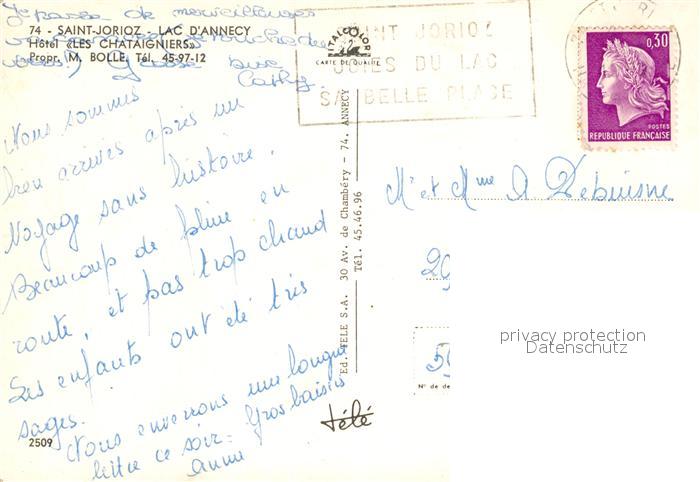 Je passe de merveilleuses
74 - SAINT-JORIOZ - LAC D'ANNECY
Hôtel «LES CHATAIGNIERS»
Propr. M. BOLLE, Tél. 45-97-12
Cathy
ITALCOLOR
CARTE DE QUALITÉ
SAINT JORIOZ
JOIES DU LAC
SA BELLE PLAGE
0,30
POSTES
REPUBLIQUE FRANÇAISE
Nous sommes
bien arrivés après un
voyage sans histoire.
Beaucoup de pluie en
route, et pas trop chaud
Les enfants ont été très
sages.
Nous enverrons une longue
lettre ce soir. Gros baisers
Annie
2509
Ed. TELE S.A. 30 Av. de Chambéry - 74. ANNECY
Tél. 45.46.96
télé
Mr et Mme A Debuisne
20
5
N° de de
privacy protection
Datenschutz